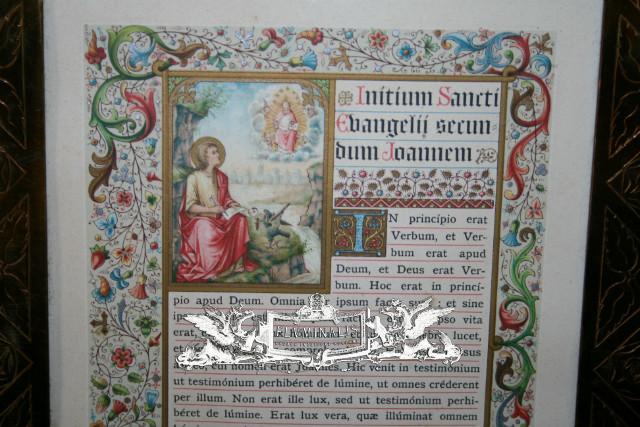 Initium Sancti
Evangelij secun-
dum Joannem
IN princípio erat
Verbum, et Ver-
bum erat apud
Deum, et Deus erat Ver-
bum. Hoc erat in princí-
pio apud Deum. Omnia per ipsum facta sunt: et sine
vita
erat,
lucet,
FLUMINALIS
cui nomen erat Joánnes. Hic venit in testimónium
ut testimónium perhibéret de lúmine, ut omnes créderent
per illum. Non erat ille lux, sed ut testimónium perhi-
béret de lúmine. Erat lux vera, quæ illúminat omnem